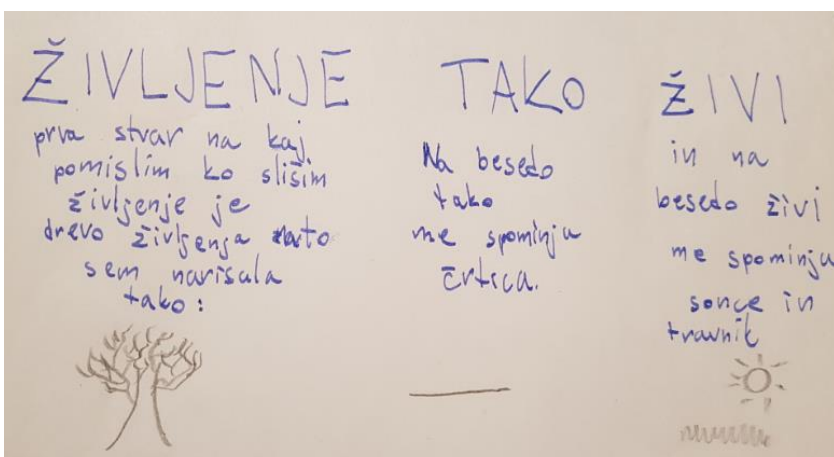 ŽIVLJENJE
prva stvar na kaj
pomislim ko slišim
življenje je
drevo življenja zato
sem narisala
tako:
TAKO
Na besedo
tako
me spominja
črtica.
ŽIVI
in na
besedo živi
me spominja
sonce in
travnik